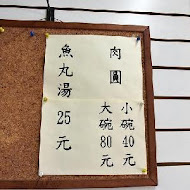 肉圓
小碗40元
大碗80元
魚丸湯25元